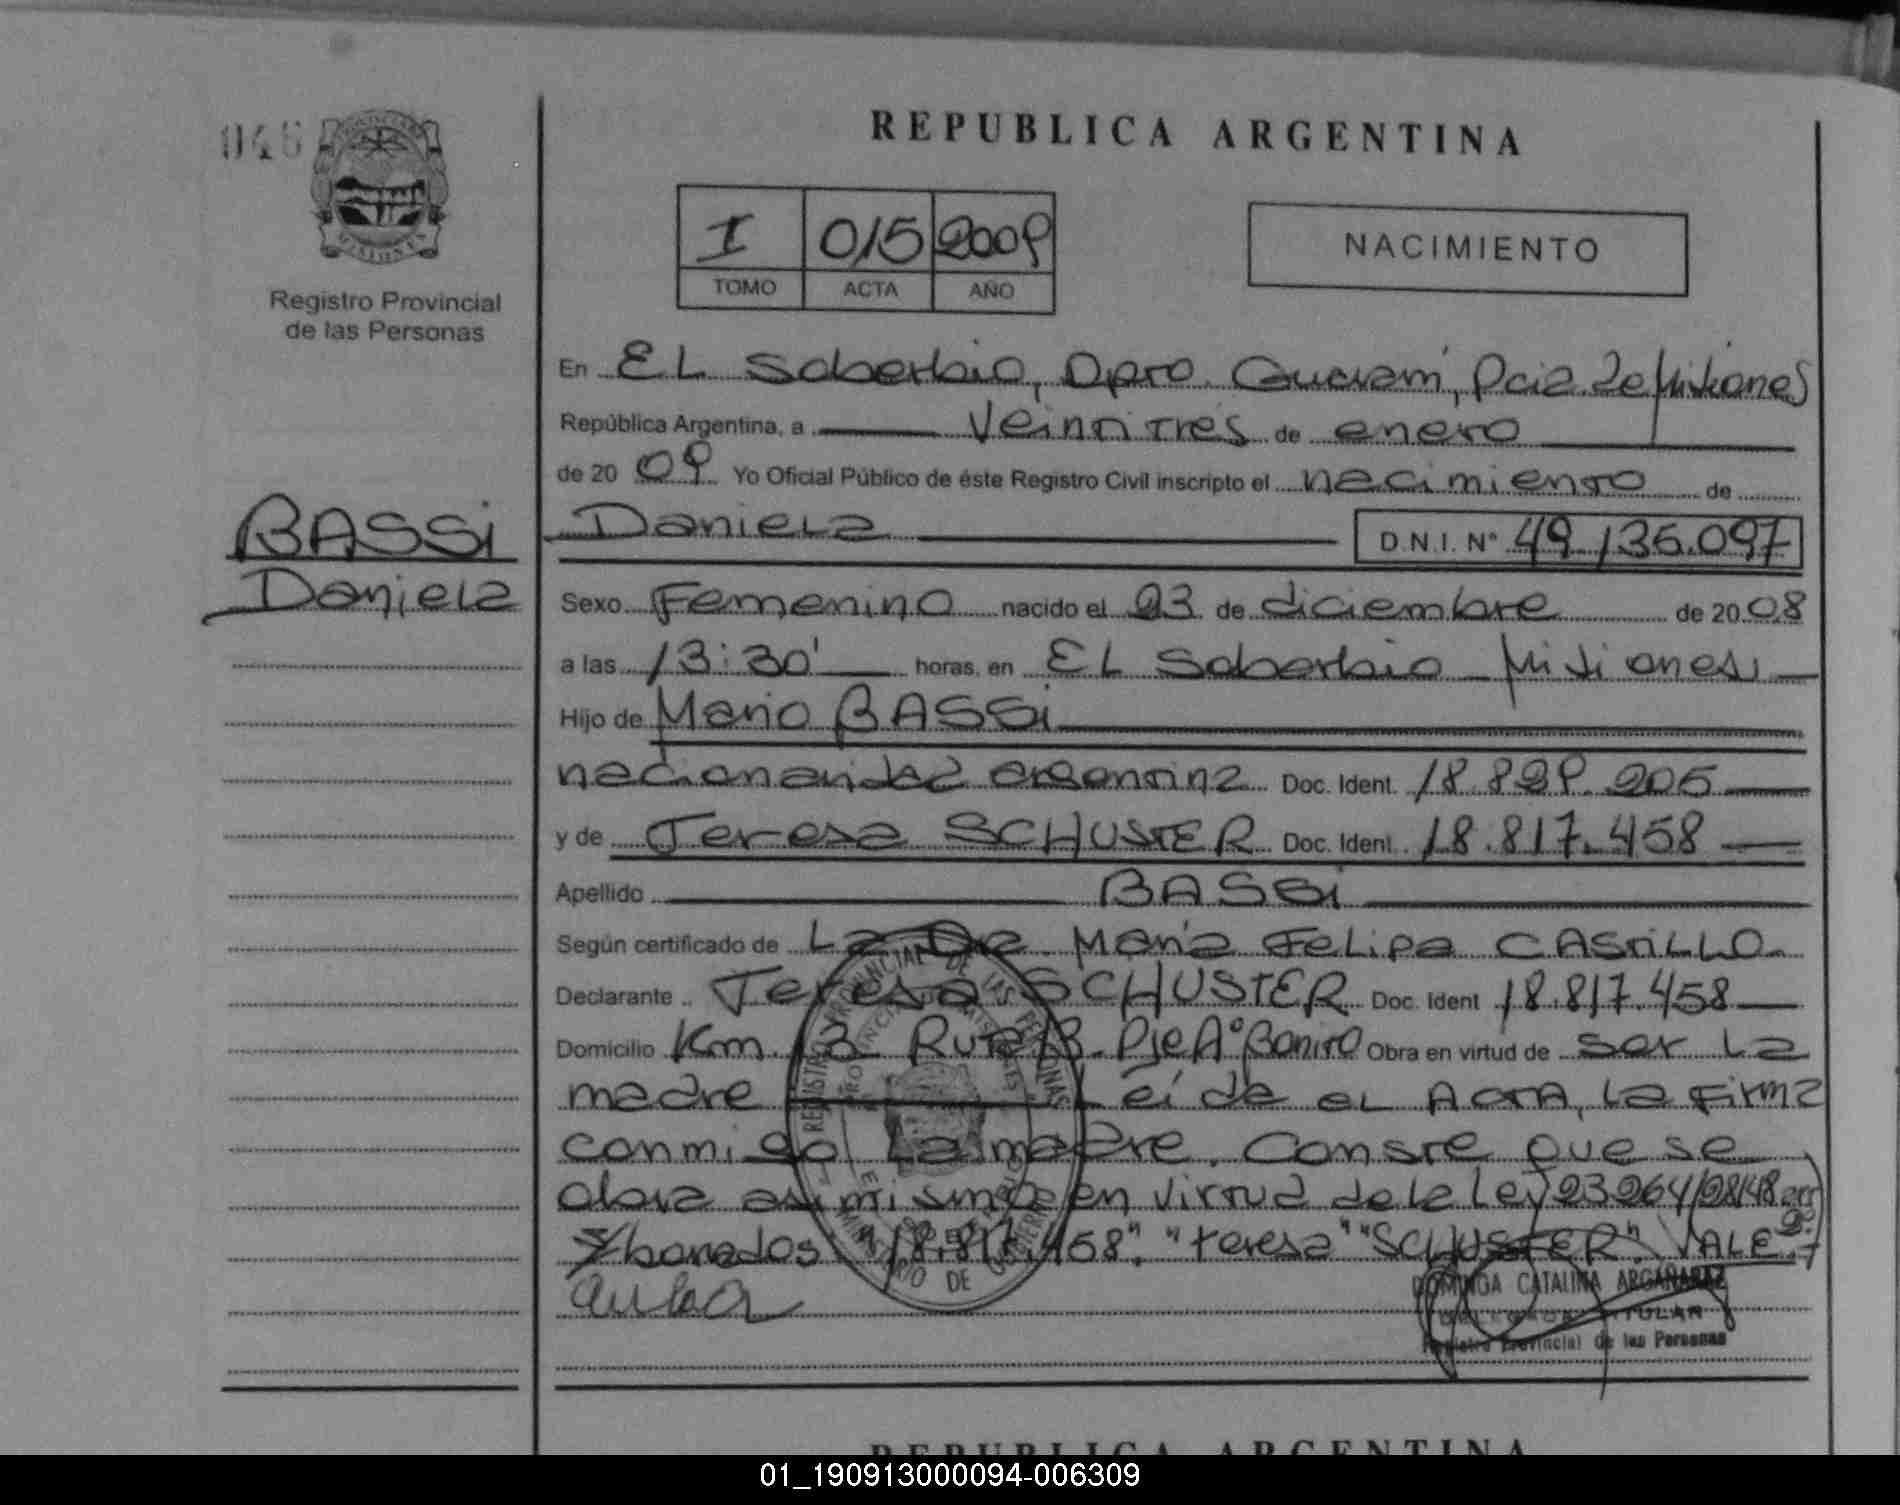 046
REPUBLICA ARGENTINA
I 015 2009
TOMO ACTA AÑO
NACIMIENTO
Registro Provincial
de las Personas
En EL Soberbio, Dpto. Guaraní, Pcia. de Misiones
República Argentina, a Veintitrés de enero
de 20 09 Yo Oficial Público de éste Registro Civil inscripto el nacimiento de
BASSi
Daniela
Daniela D.N.I. N° 49.136.097
Sexo Femenino nacido el 23 de diciembre de 20 08
a las 13:30' horas, en EL Soberbio - Misiones
Hijo de Mario BASSi
nacionalidad argentina Doc. Ident. 18.829.205
y de Teresa SCHUSTER Doc. Ident. 18.817.458
Apellido BASSi
Según certificado de La Dra. María Felipa CASTiLLO
Declarante Teresa SCHUSTER Doc. Ident 18.817.458
Domicilio Km. 13 Ruta 13 - Pje A° Bonito Obra en virtud de ser La
madre Leída eL ACTA, La Firma
conmigo La madre. Conste que se
obra asimismo en virtud de la Ley 23264/
S/borrados "18.817.458", "Teresa" "SCHUSTER". VALE
DOMINGA CATALINA ARGAÑARAZ
DELEGADA TITULAR
Registro Provincial de las Personas
REGISTRO PROVINCIAL DE LAS PERSONAS
MINISTERIO DE GOBIERNO
REPUBLICA ARGENTINA
01_190913000094-006309